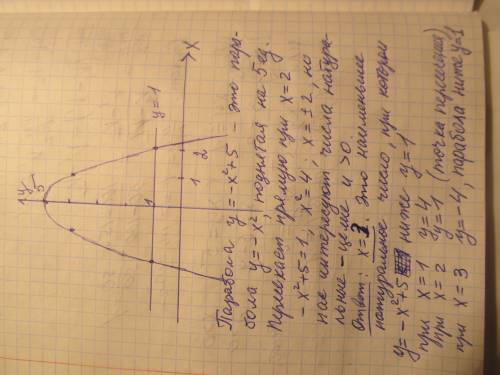 y
5
1
y=1
1
2
X
Парабола y=-x²+5 - это пара-
бола y=-x², поднятая на 5 ед.
Пересекает прямую при x=2
-x²+5=1, x²=4; x=±2, но
нас интересуют числа натура-
льные - целые и >0.
Ответ: x=3. Это наименьшее
натуральное число, при котором
y=-x²+5 ниже y=1
при x=1 y=4
при x=2 y=1 (точка пересечения)
при x=3 y=-4, парабола ниже y=1